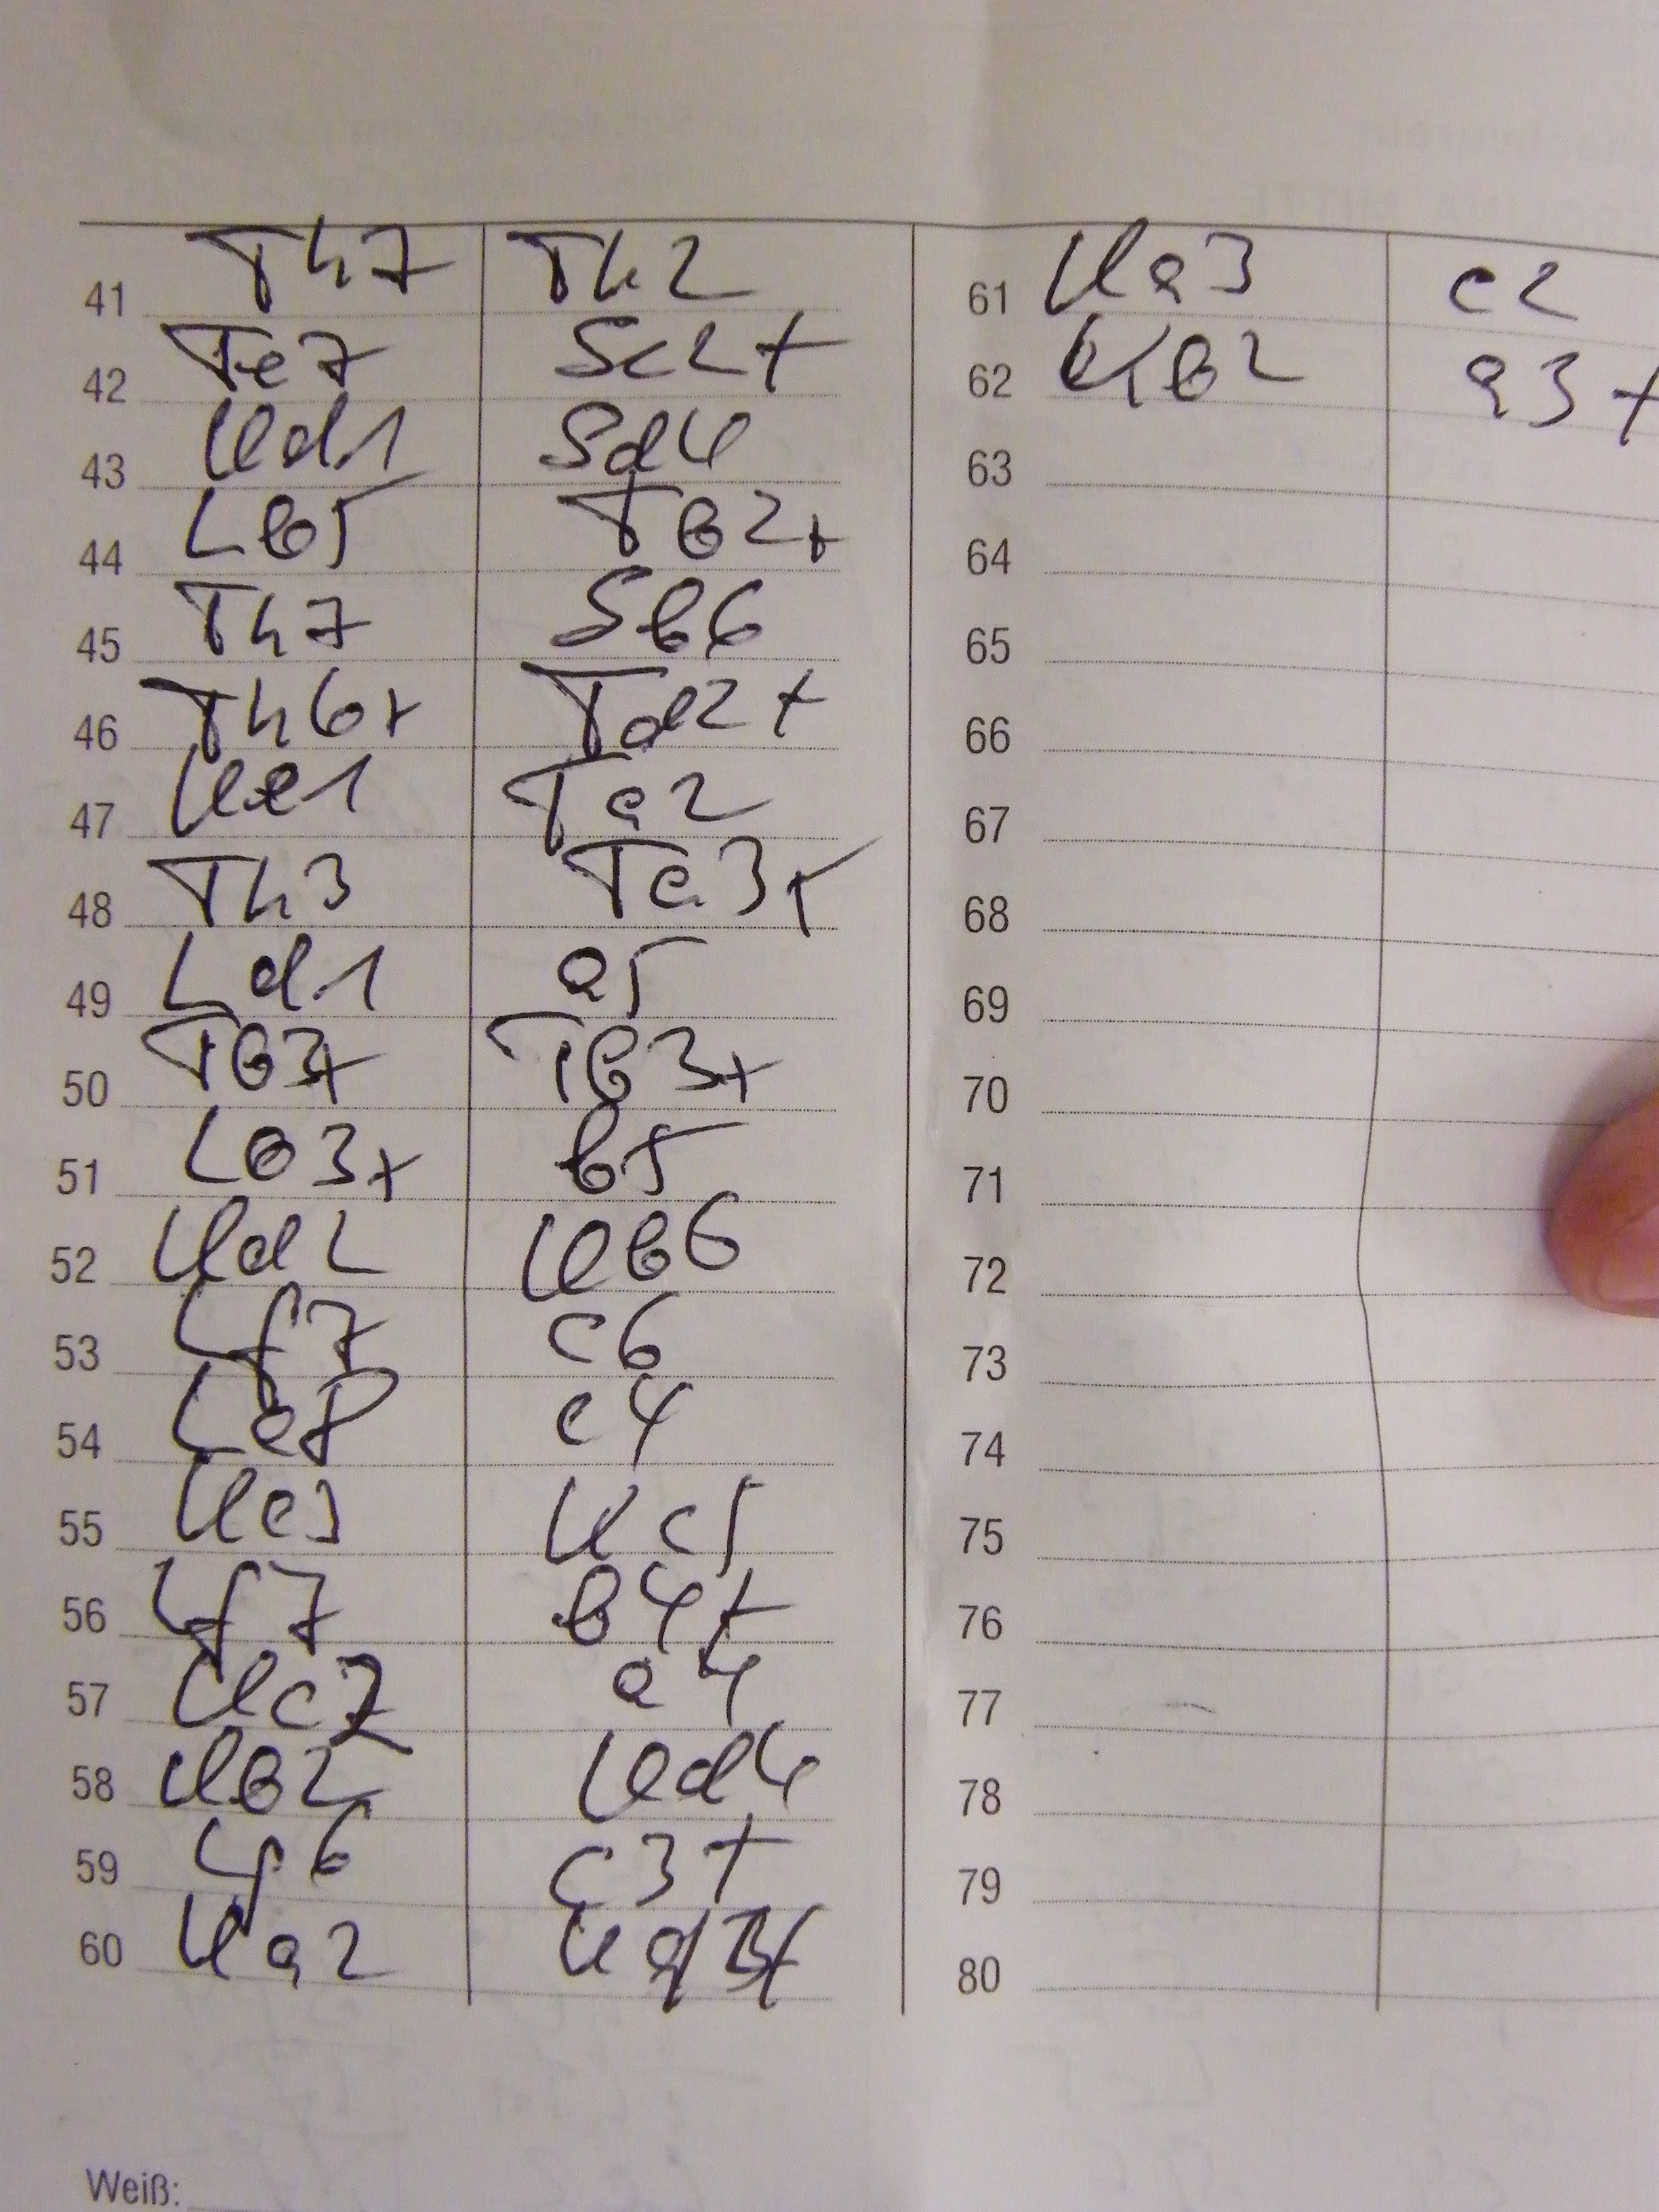 41 Th7 Th2
42 Te7 Sc2+
43 Kd1 Sd4
44 Lb5 Tb2+
45 Th7 Sb6
46 Th6+ Td2+
47 Ke1 Ta2
48 Th3 Te3+
49 Ld1 a5
50 Tb3+ Tb3+
51 Lb3+ b5
52 Kd2 Kb6
53 Lf7 c6
54 Le8 c4
55 Kc3 Kc5
56 Lf7 b4+
57 Kc2 a4
58 Kb2 Kd4
59 Lg6 c3+
60 Ka2 Kd3+
61 Ka3 c2
62 Kb2 a3+
63
64
65
66
67
68
69
70
71
72
73
74
75
76
77
78
79
80
Weiß: